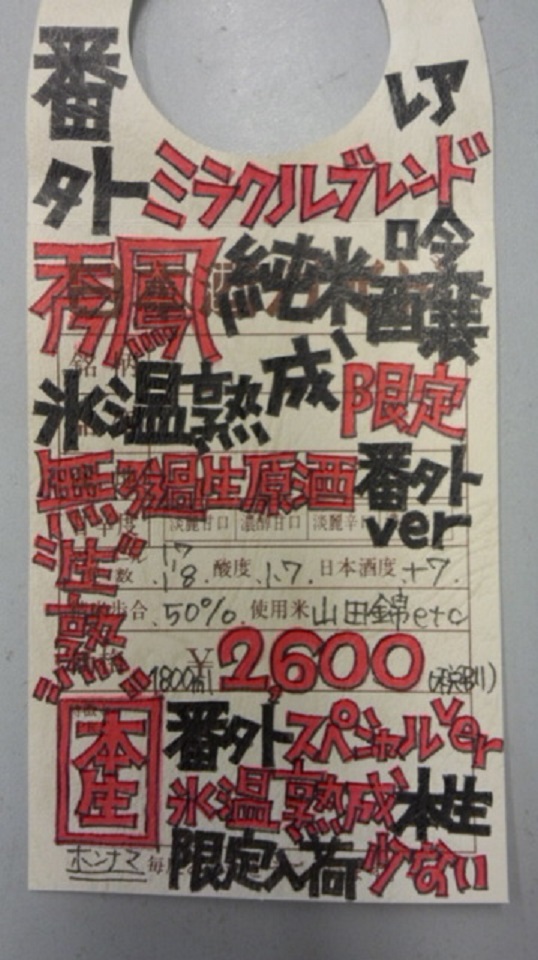 番外 レア
ミラクルブレンド
秀鳳 純米吟醸
氷温熟成 限定
無ろ過生原酒 番外
ver
淡麗甘口 濃醇甘口 淡麗辛口
生熟
度数 17 18 酸度 1.7 日本酒度 +7
歩合 50% 使用米 山田錦etc
1800ml ¥2,600 (税別)
本生 番外スペシャルver
氷温熟成 本生
ホンナマ 限定入荷 少ない